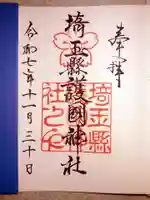 奉拝
埼玉縣護國神社
埼玉縣
社之印
令和七年十一月三十日